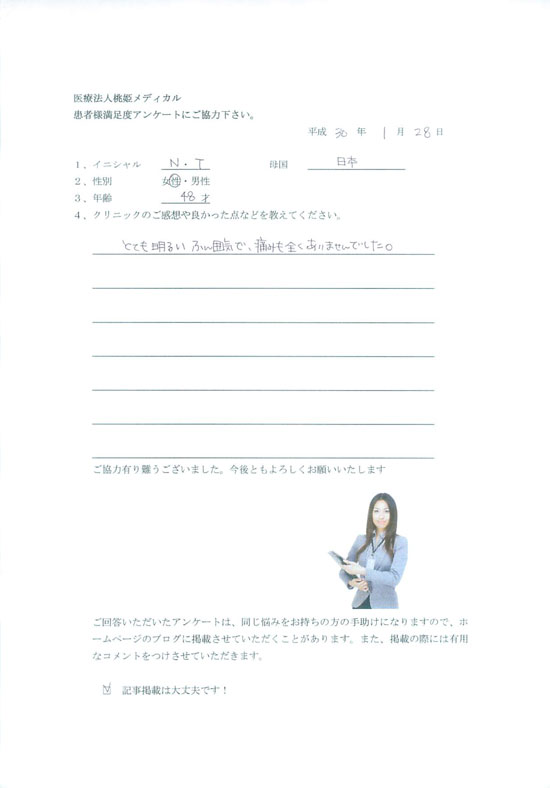 医療法人桃姫メディカル
患者様満足度アンケートにご協力下さい。
平成 30 年 1 月 28 日
1、イニシャル N・T 母国 日本
2、性別 女性・男性
3、年齢 48 才
4、クリニックのご感想や良かった点などを教えてください。
とても明るい ふん囲気で、痛みも全くありませんでした。
ご協力有り難うございました。今後ともよろしくお願いいたします
ご回答いただいたアンケートは、同じ悩みをお持ちの方の手助けになりますので、ホ
ームページのブログに掲載させていただくことがあります。また、掲載の際には有用
なコメントをつけさせていただきます。
☑ 記事掲載は大丈夫です！